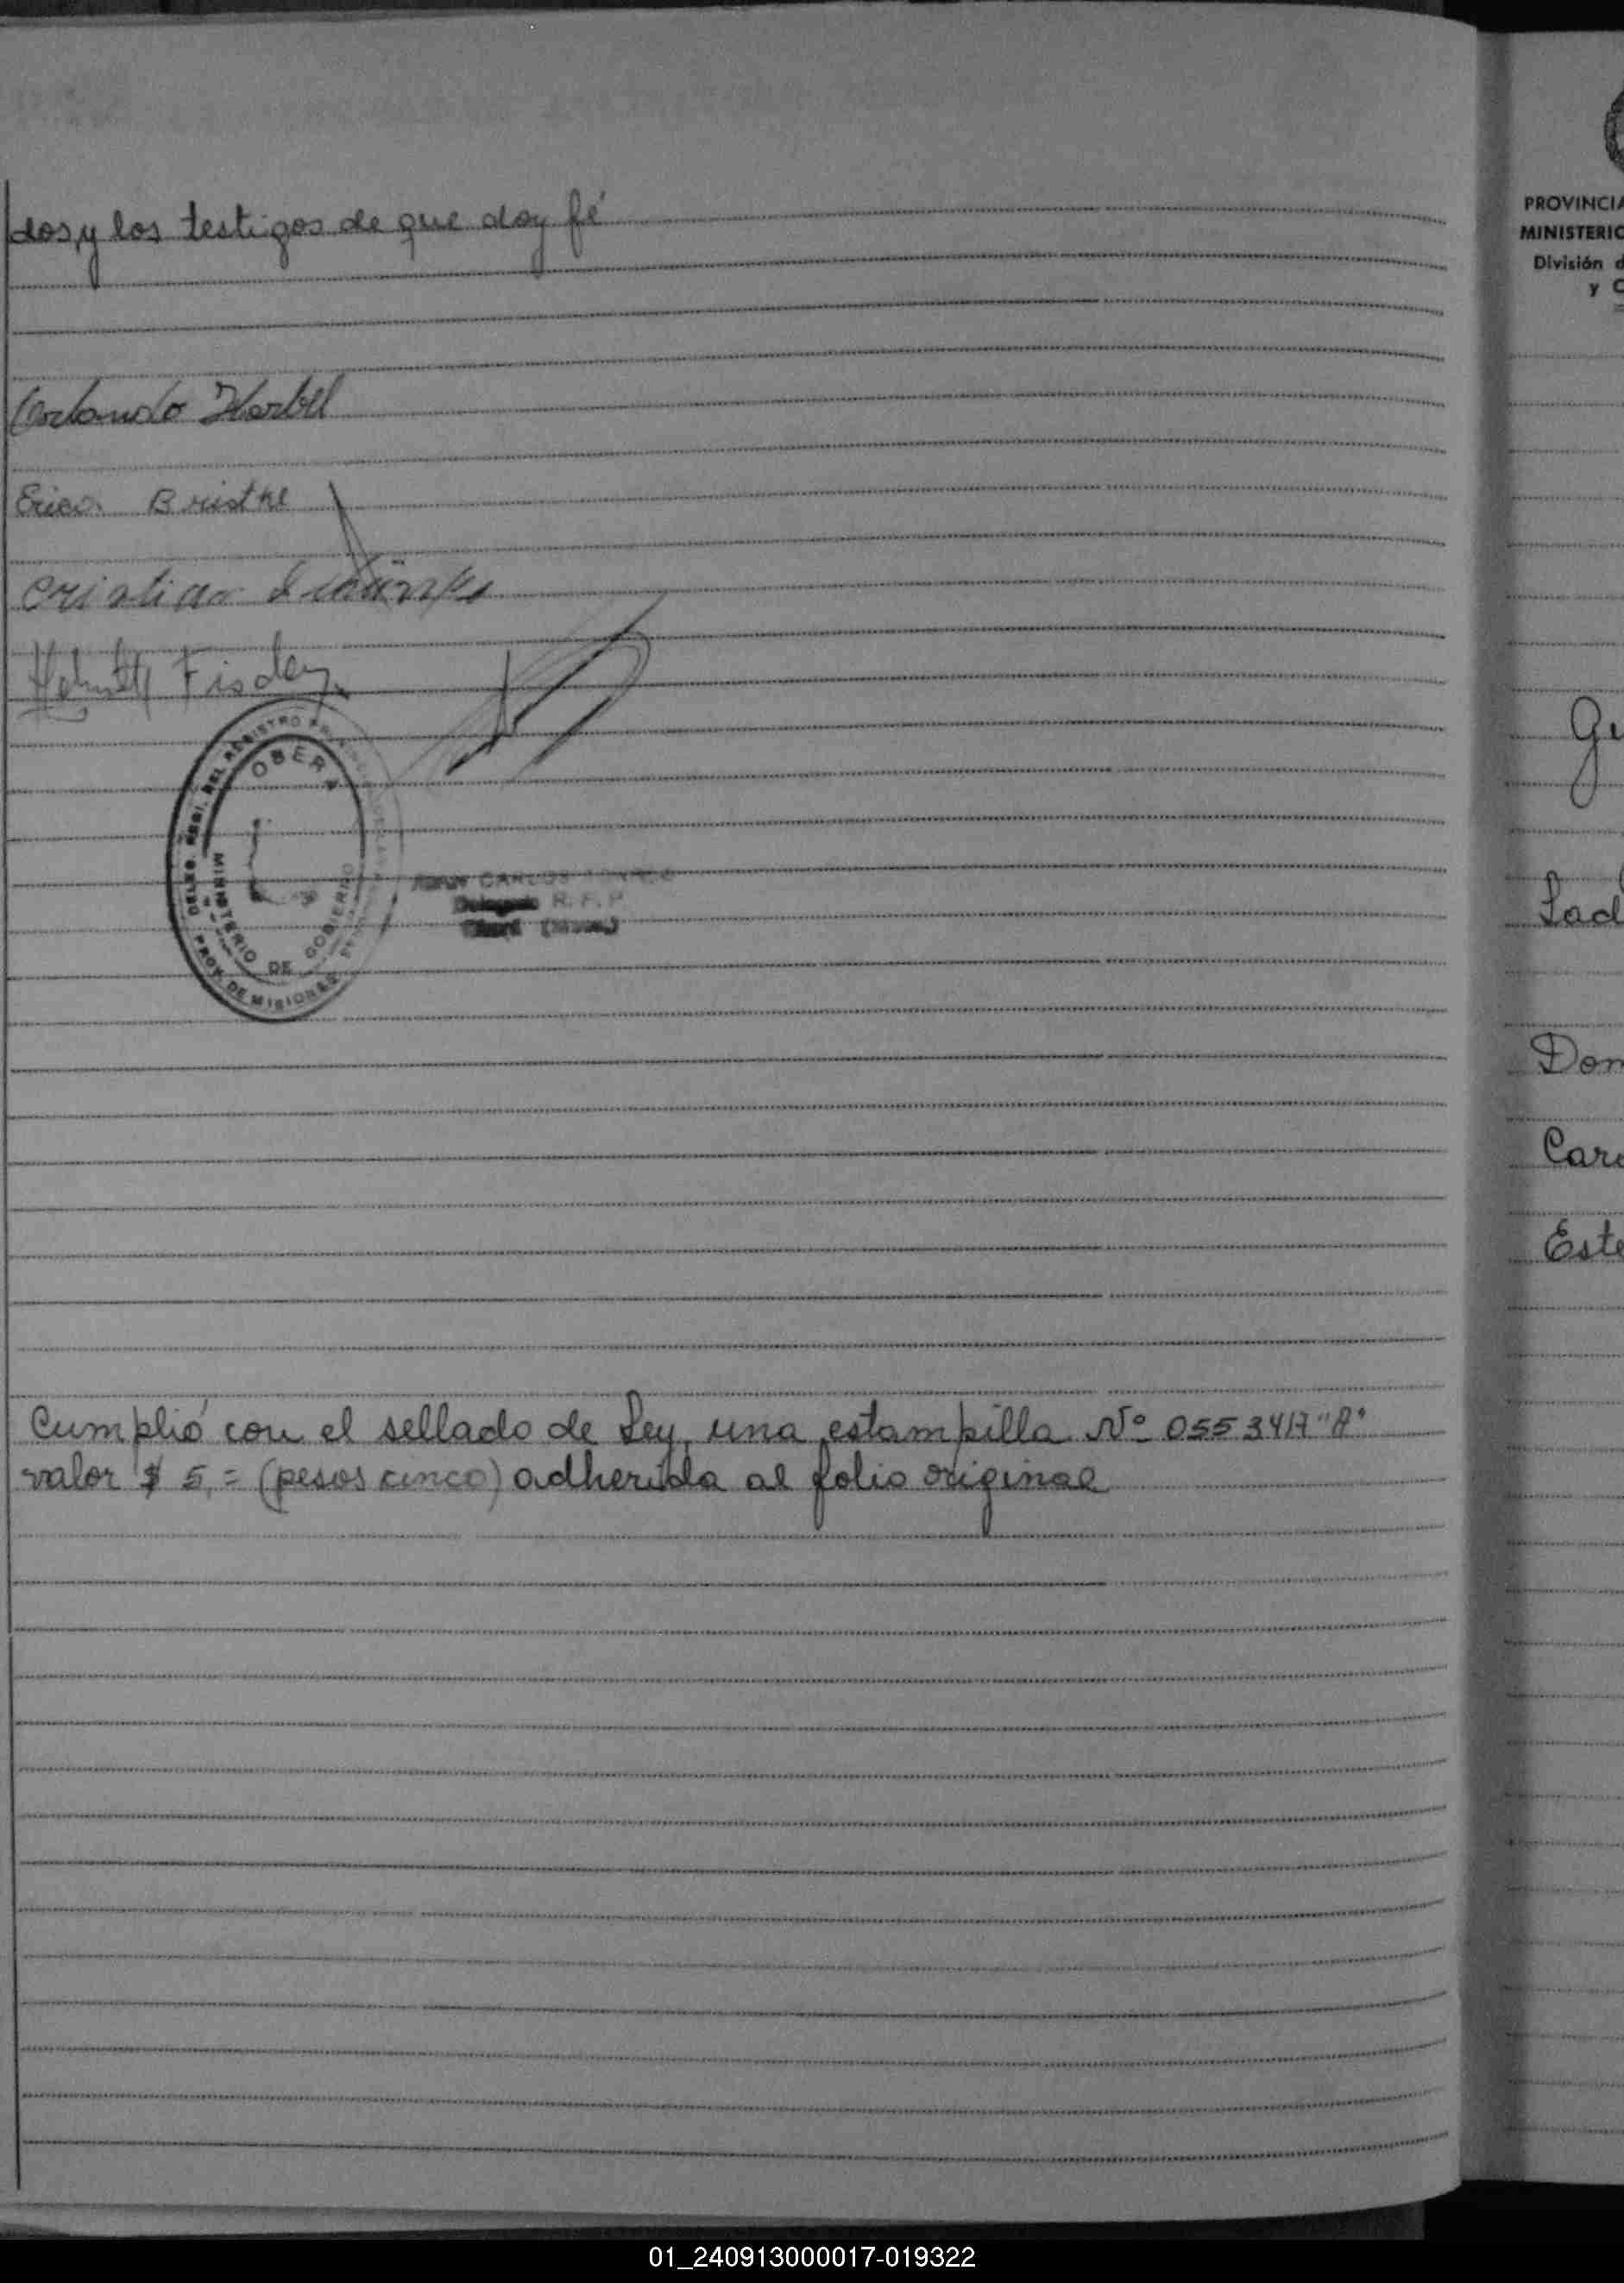 dos, y los testigos de que doy fé
Orlando Harbel
Erico Bristke
Cristian
Helmutt
DELEG. REGI. DEL REGISTRO
OBERA
MINISTERIO DE GOBIERNO
PROV. DE MISIONES
CARLOS
Delegado R. P. P
Cumplió con el sellado de Ley, una estampilla Nº 0553417 "A"
valor $ 5,= (pesos cinco) adherida al folio original
PROVINCIA
MINISTERIO
División d
y C
Gu
Lad
Dom
Car
Este
01_240913000017-019322